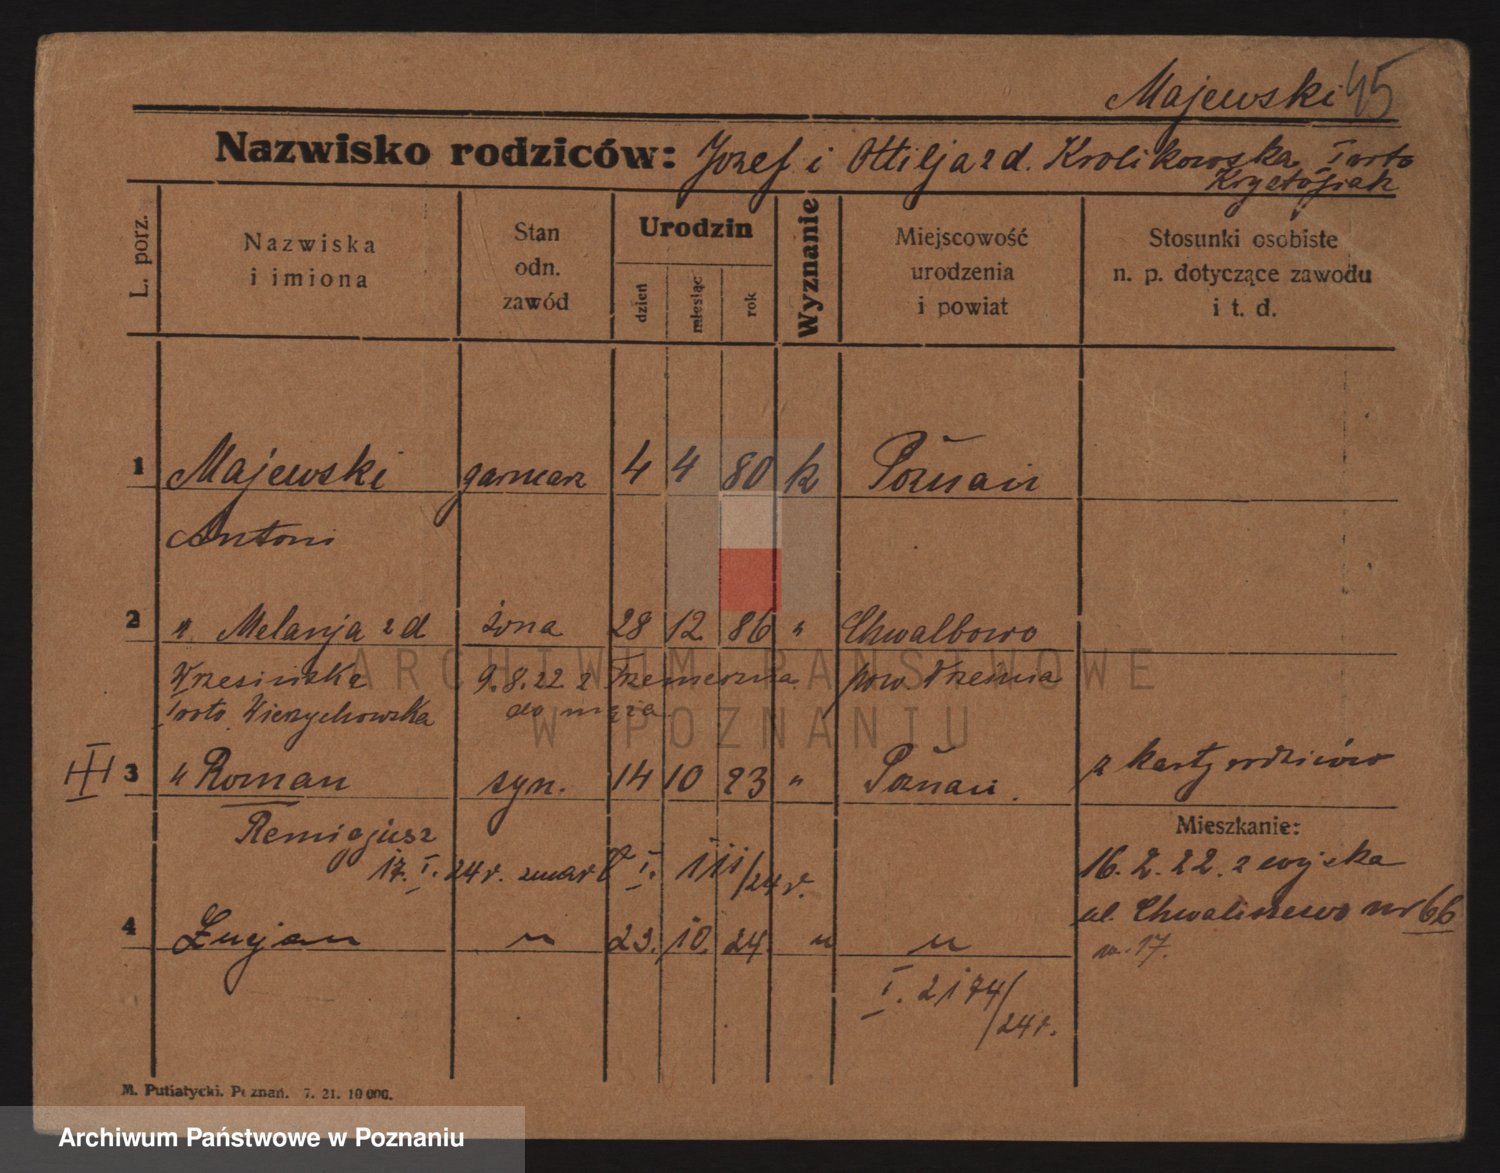 Majewski 45
Nazwisko rodziców: Jozef i Ottilja z d. Krolikowska I voto
L. porz.
Nazwiska
i imiona
Stan
odn.
zawód
Urodzin
dzień
miesiąc
rok
Wyznanie
Miejscowość
urodzenia
i powiat
Stosunki osobiste
n. p. dotyczące zawodu
i t. d.
1 Majewski garncarz 4 4 80 k Poznań
Antoni
2 " Melanja z d żona 28 12 86 " Chwalbowo
Wrzesińska 9.8.22 z Trzemeszna pow. Września
1 voto Wierzychowska do męża
III 3 " Roman syn. 14 10 23 " Poznań. z karty rodziców
Remigjusz
17. I. 24 r. zmarł I. 111/24 r.
Mieszkanie:
16. 2. 22. z wojska
ul. Chwaliszewo nr 66
m. 17.
4 Lucjan " 23. 10. 24 " "
I. 2174/24 r.
M. Putiatycki. Poznań. 7. 21. 10 000.
ARCHIWUM PAŃSTWOWE
W POZNANIU
Archiwum Państwowe w Poznaniu